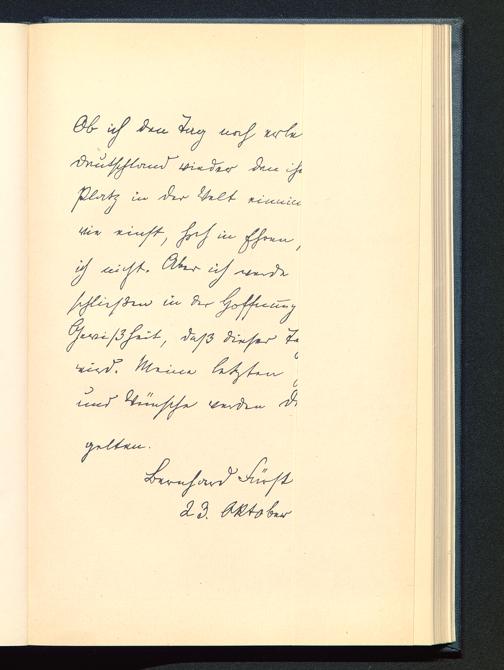 Ob ich den Tag noch erle
Deutschland wieder den ih
Platz in der Welt einnim
wie einst, hoch in Ehren,
ich nicht. Aber ich werde
schließen in der Hoffnung
Gewißheit, daß dieser Ta
wird. Meine letzten G
und Wünsche werden De
gelten.
Bernhard Fürst
23. Oktober